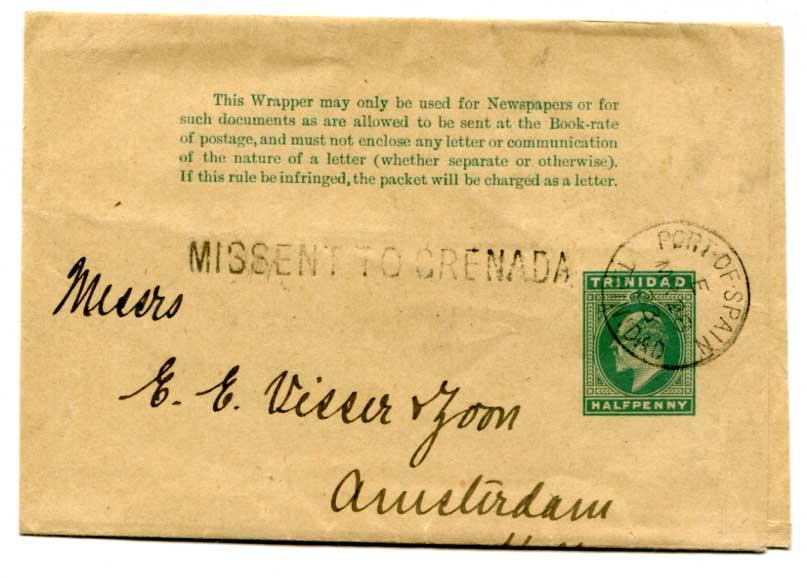 This Wrapper may only be used for Newspapers or for
such documents as are allowed to be sent at the Book-rate
of postage, and must not enclose any letter or communication
of the nature of a letter (whether separate or otherwise).
If this rule be infringed, the packet will be charged as a letter.
MISSENT TO GRENADA
PORT-OF-SPAIN
TRINIDAD
HALFPENNY
Messrs
E. E. Visser & Zoon
Amsterdam